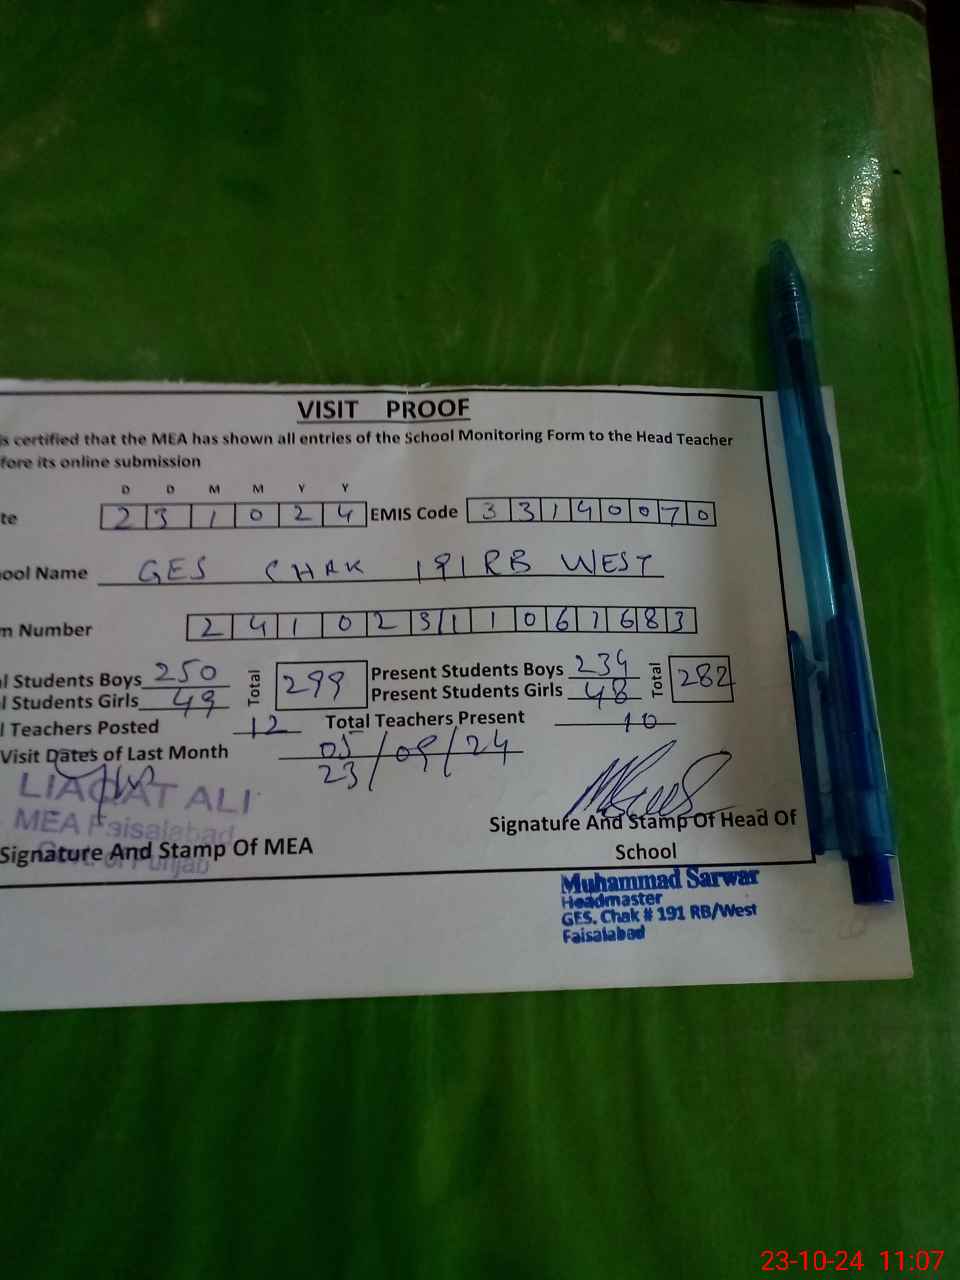 VISIT PROOF
is certified that the MEA has shown all entries of the School Monitoring Form to the Head Teacher
fore its online submission
D D M M Y Y
te 2 3 1 0 2 4 EMIS Code 3 3 1 4 0 0 7 0
ool Name GES CHAK 191 RB WEST
m Number 2 4 1 0 2 3 1 1 0 6 7 6 8 3
l Students Boys 250 Total 299 Present Students Boys 234 Total 282
l Students Girls 49 Present Students Girls 48
l Teachers Posted 12 Total Teachers Present 10
Visit Dates of Last Month 05/09/24
23
LIAQAT ALI
MEA Faisalabad
Govt. of Punjab
Signature And Stamp Of MEA
Signature And Stamp Of Head Of
School
Muhammad Sarwar
Headmaster
GES. Chak # 191 RB/West
Faisalabad
23-10-24 11:07